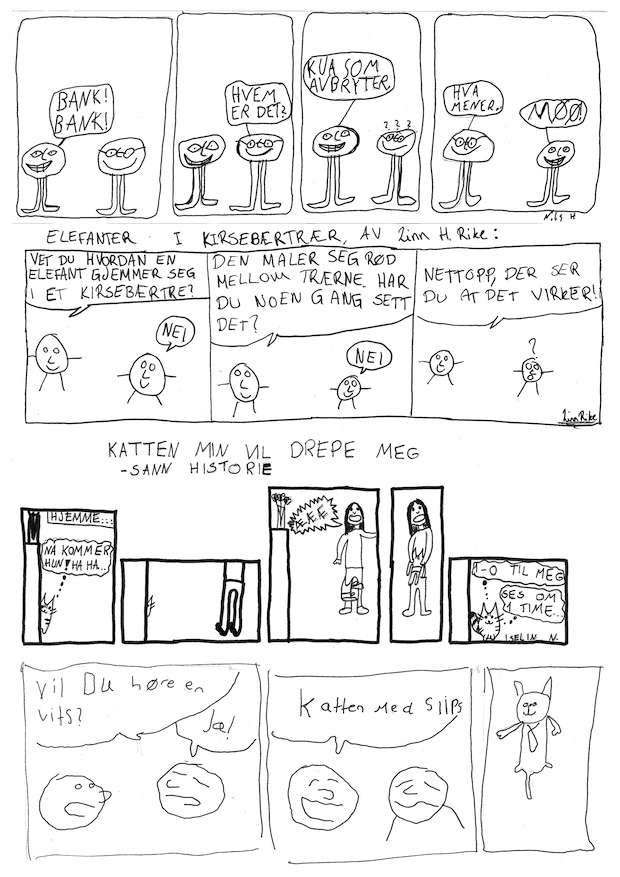 BANK!
BANK!
HVEM
ER DET?
KUA SOM
AVBRYTER
? ? ?
HVA
MENER..
MØØ!
Nils H
ELEFANTER I KIRSEBÆRTRÆR, AV Linn H. Rike:
VET DU HVORDAN EN
ELEFANT GJEMMER SEG
I ET KIRSEBÆRTRE?
NEI
DEN MALER SEG RØD
MELLOM TRÆRNE. HAR
DU NOEN GANG SETT
DET?
NEI
NETTOPP, DER SER
DU AT DET VIRKER!
?
Linn Rike
KATTEN MIN VIL DREPE MEG
-SANN HISTORIE
HJEMME...
NA KOMMER
HUN! HA HA...
ÆÆÆ
1-0 TIL MEG
SES OM
1 TIME...
ISELIN N.
Vil Du høre en
vits?
Ja!
Katten Med Slips